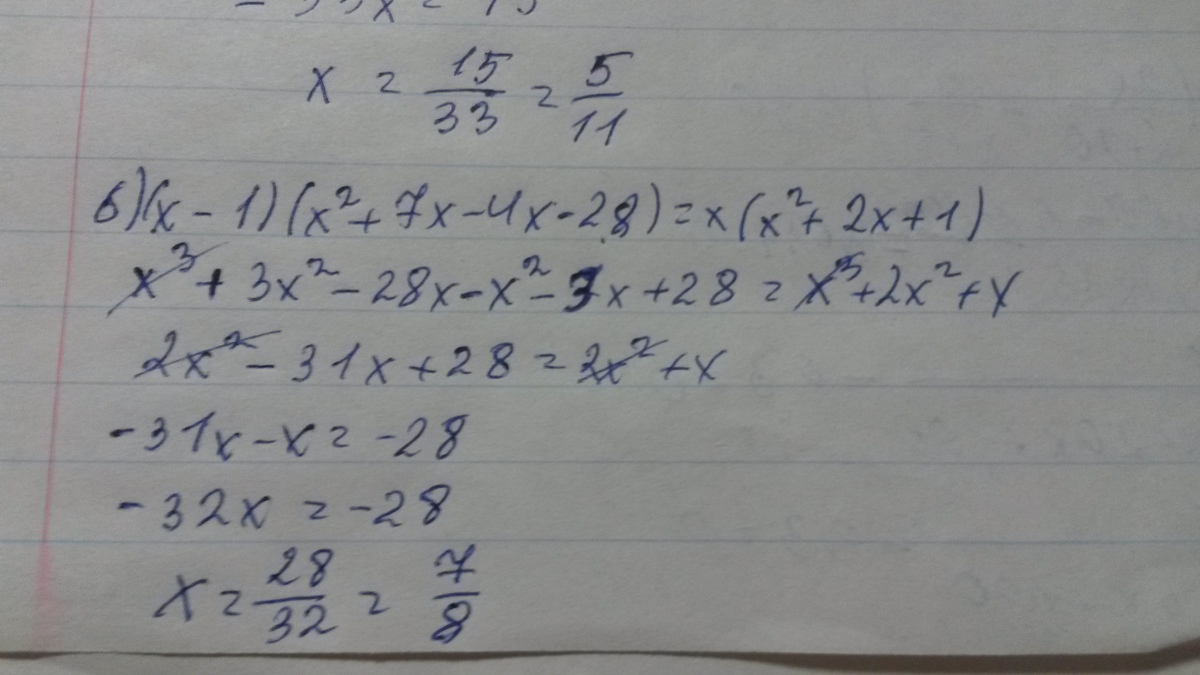 - 33x = 15
x = 15/33 = 5/11
б) (x - 1) (x² + 7x - 4x - 28) = x (x² + 2x + 1)
x³ + 3x² - 28x - x² - 3x + 28 = x³ + 2x² + x
2x² - 31x + 28 = 2x² + x
-31x - x = -28
-32x = -28
x = 28/32 = 7/8